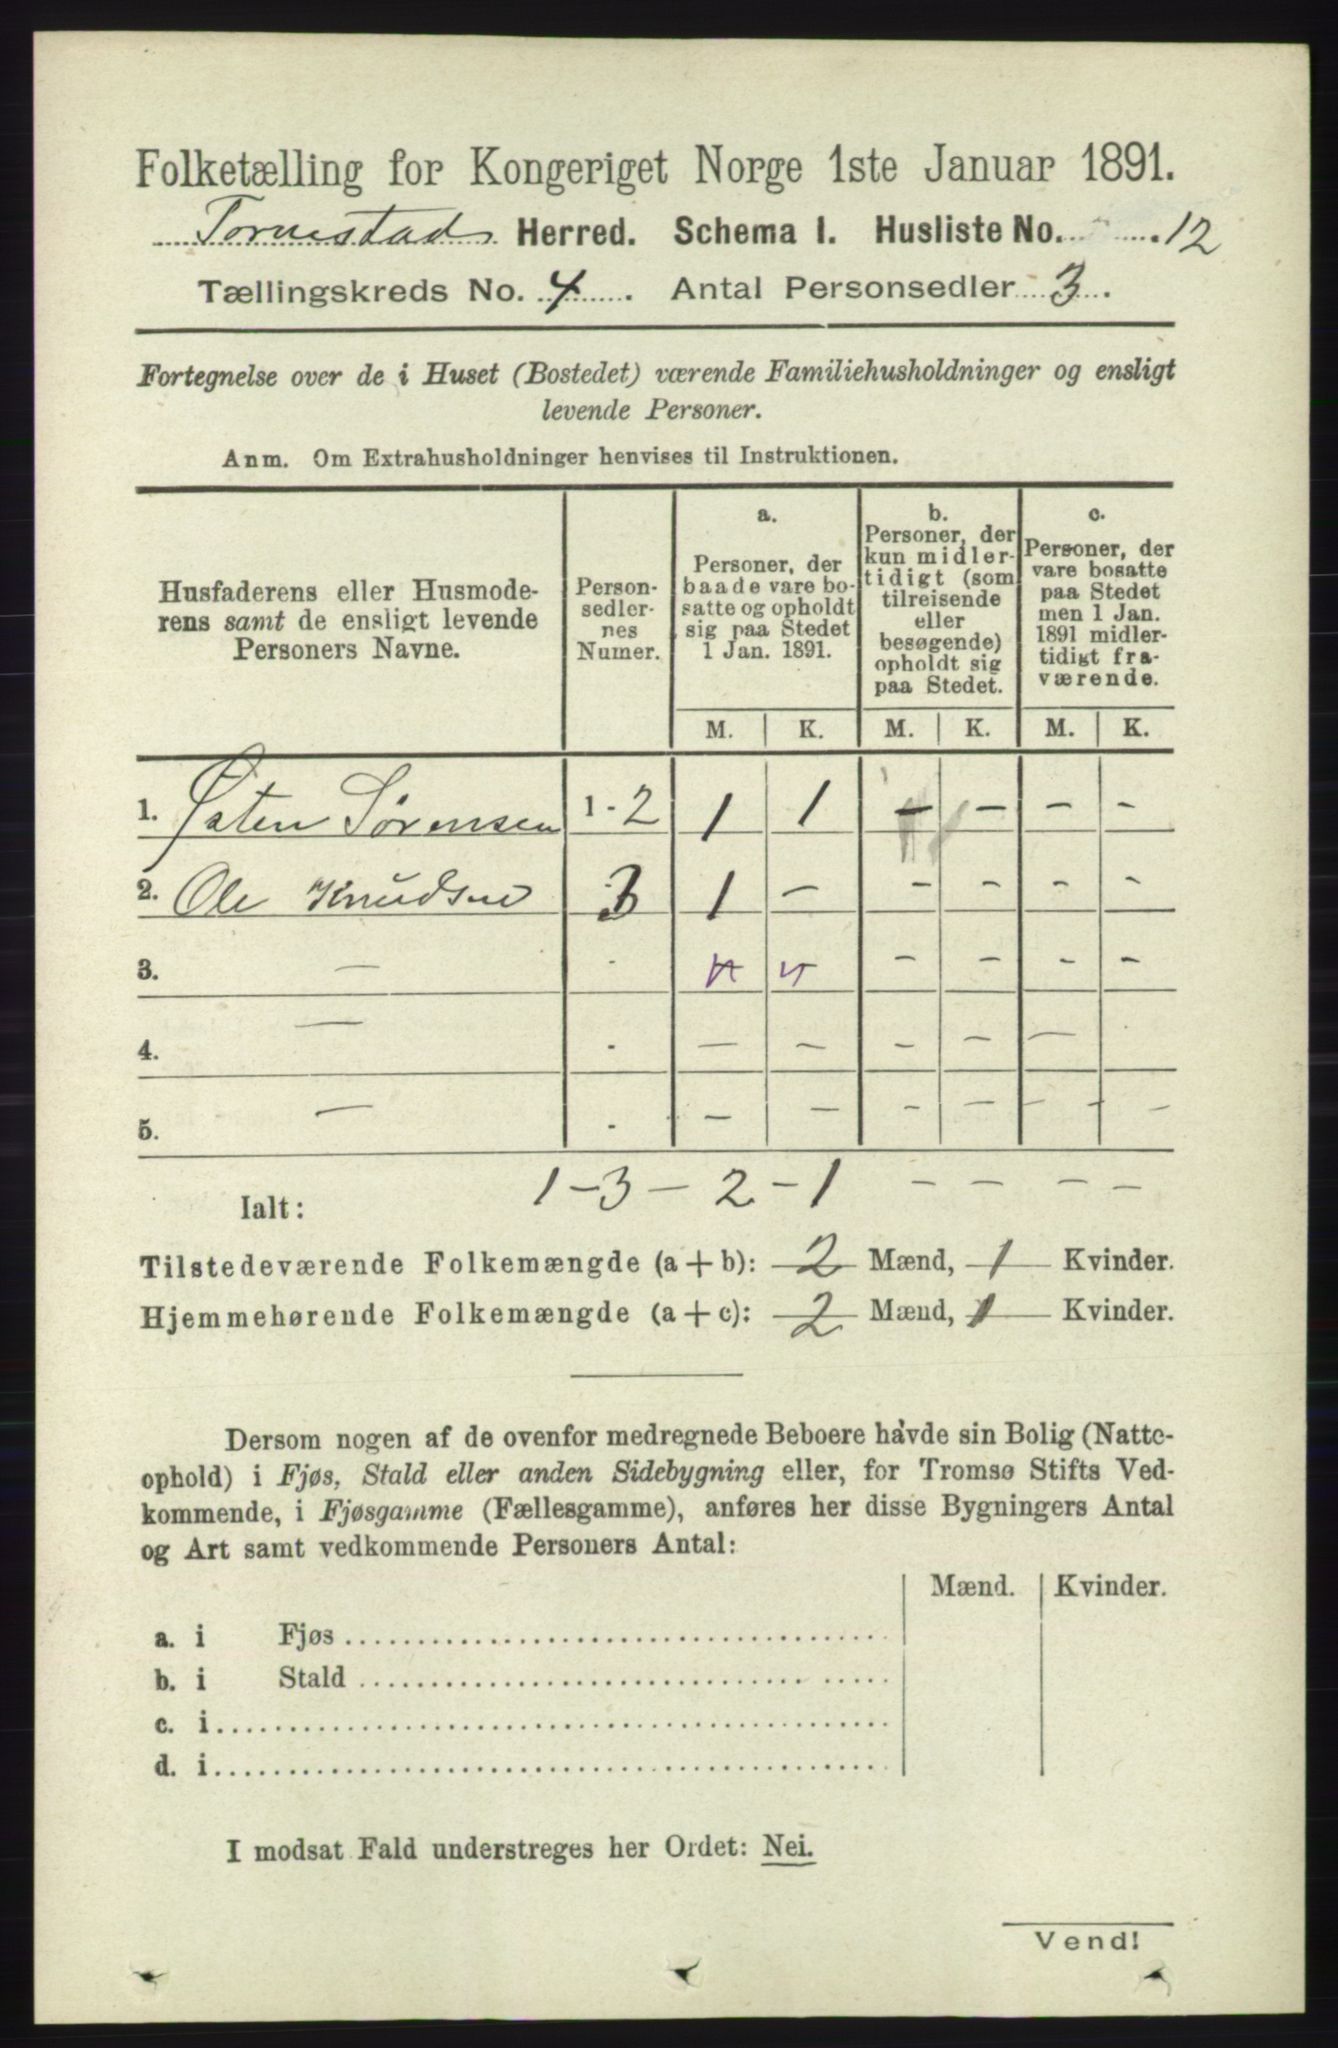 Folketælling for Kongeriget Norge 1ste Januar 1891.
Tornestad Herred. Schema 1. Husliste No. 12
Tællingskreds No. 4. Antal Personsedler 3.
Fortegnelse over de i Huset (Bostedet) værende Familiehusholdninger og ensligt
levende Personer.
Anm. Om Extrahusholdninger henvises til Instruktionen.
Husfaderens eller Husmode-
rens samt de ensligt levende
Personers Navne.
Person-
sedler-
nes
Numer.
a.
Personer, der
baade vare bo-
satte og opholdt
sig paa Stedet
1 Jan. 1891.
b.
Personer, der
kun midler-
tidigt (som
tilreisende
eller
besøgende)
opholdt sig
paa Stedet.
c.
Personer, der
vare bosatte
paa Stedet
men 1 Jan.
1891 midler-
tidigt fra-
værende.
M. K. M. K. M. K.
1. Østen Sørensen 1 - 2 1 1 - - - -
2. Ole Knudsen 3 1 - - - - -
3. - - - - - -
4. - - - - - - -
5. - - - - - - - -
Ialt: 1 - 3 - 2 - 1 - - - -
Tilstedeværende Folkemængde (a + b): 2 Mænd, 1 Kvinder.
Hjemmehørende Folkemængde (a + c): 2 Mænd, 1 Kvinder.
Dersom nogen af de ovenfor medregnede Beboere havde sin Bolig (Natte-
ophold) i Fjøs, Stald eller anden Sidebygning eller, for Tromsø Stifts Ved-
kommende, i Fjøsgamme (Fællesgamme), anføres her disse Bygningers Antal
og Art samt vedkommende Personers Antal:
Mænd. Kvinder.
a. i Fjøs
b. i Stald
c. i
d. i
I modsat Fald understreges her Ordet: Nei.
Vend!